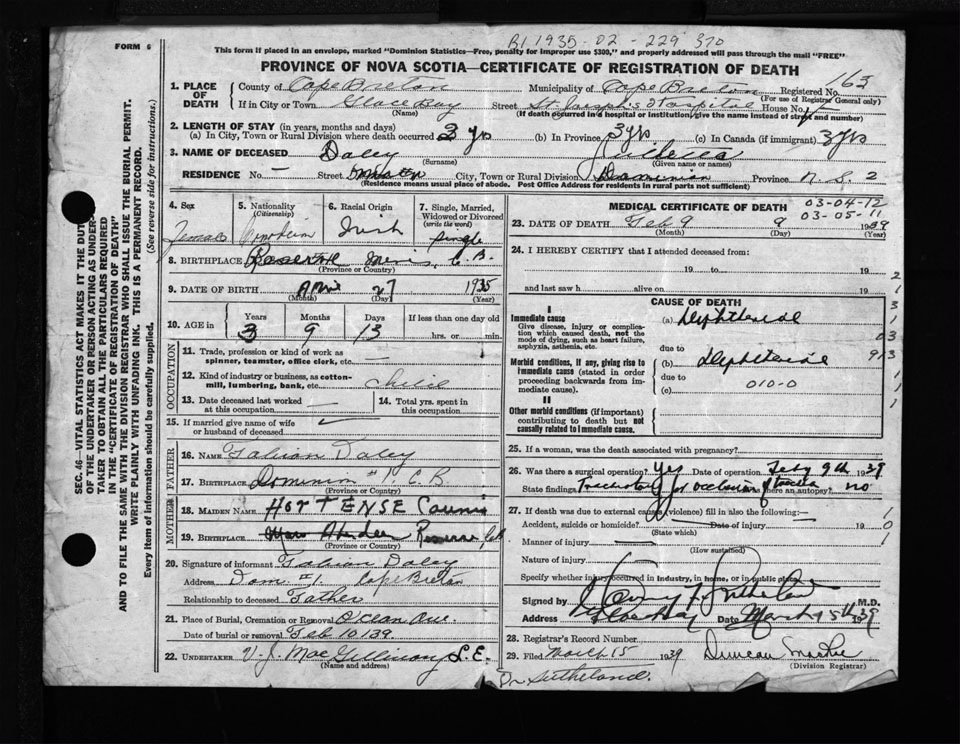 B1 1935-02-229 370
FORM 6
This form if placed in an envelope, marked "Dominion Statistics—Free, penalty for improper use $300," and properly addressed will pass through the mail "FREE"
PROVINCE OF NOVA SCOTIA—CERTIFICATE OF REGISTRATION OF DEATH
SEC. 46—VITAL STATISTICS ACT MAKES IT THE DUTY
OF THE UNDERTAKER OR PERSON ACTING AS UNDER-
TAKER TO OBTAIN ALL THE PARTICULARS REQUIRED
IN THE "CERTIFICATE OF REGISTRATION OF DEATH"
AND TO FILE THE SAME WITH THE DIVISION REGISTRAR WHO SHALL ISSUE THE BURIAL PERMIT.
WRITE PLAINLY WITH UNFADING INK. THIS IS A PERMANENT RECORD.
Every item of information should be carefully supplied. (See reverse side for instructions.)
1. PLACE OF DEATH County of Cape Breton Municipality of Cape Breton Registered No. 63
(For use of Registrar General only)
If in City or Town Glace Bay Street St. Joseph's Hospital House No.
(Name) (If death occurred in a hospital or institution, give name instead of street and number)
2. LENGTH OF STAY (in years, months and days)
(a) In City, Town or Rural Division where death occurred 3 yrs (b) In Province 3 yrs (c) In Canada (if immigrant) 3 yrs
3. NAME OF DECEASED Daley
(Surname) (Given name or names)
RESIDENCE No. — Street City, Town or Rural Division Dominion Province N. S. 2
(Residence means usual place of abode. Post Office Address for residents in rural parts not sufficient)
4. Sex 5. Nationality (Citizenship) 6. Racial Origin 7. Single, Married, Widowed or Divorced (write the word)
Female Irish single
8. BIRTHPLACE Reserve Mines, C. B.
(Province or Country)
9. DATE OF BIRTH 27 1935
(Month) (Day) (Year)
10. AGE in Years Months Days If less than one day old
3 9 13 hrs. or min.
OCCUPATION
11. Trade, profession or kind of work as spinner, teamster, office clerk, etc. —
12. Kind of industry or business, as cotton-mill, lumbering, bank, etc. child
13. Date deceased last worked at this occupation — 14. Total yrs. spent in this occupation
15. If married give name of wife or husband of deceased
FATHER
16. NAME Fabian Daley
17. BIRTHPLACE Dominion #1. C B
(Province or Country)
MOTHER
18. MAIDEN NAME HORTENSE
19. BIRTHPLACE Reserve
(Province or Country)
20. Signature of informant Fabian Daley
Address Dom #1. Cape Breton
Relationship to deceased Father
21. Place of Burial, Cremation or Removal
Date of burial or removal Feb 10/39.
22. UNDERTAKER V. J. MacGillivary L.E.
(Name and address)
MEDICAL CERTIFICATE OF DEATH 03-04-12
03-05-11
23. DATE OF DEATH Feb 9 9 1939
(Month) (Day) (Year)
24. I HEREBY CERTIFY that I attended deceased from
19 to 19
and last saw h alive on 19
CAUSE OF DEATH
I
Immediate cause (a) Diphtheriae
Give disease, injury or complication which caused death, not the mode of dying, such as heart failure, asphyxia, asthenia, etc.
due to
Morbid conditions, if any, giving rise to immediate cause (stated in order proceeding backwards from immediate cause). (b) Diphtheriae
due to
(c) 010-0
II
Other morbid conditions (if important) contributing to death but not causally related to immediate cause.
2 1 3 1 03 9 13 1 1 1
25. If a woman, was the death associated with pregnancy?
26. Was there a surgical operation? Yes Date of operation Feby 9th 1939
State findings for occlusion of trachea Was there an autopsy? no
27. If death was due to external causes (violence) fill in also the following:—
Accident, suicide or homicide? Date of injury 19
(State which)
Manner of injury
(How sustained)
Nature of injury
Specify whether injury occurred in industry, in home, or in public place
1 0 1
Signed by Sutherland M.D.
Address Glace Bay Date March 15th 1939
28. Registrar's Record Number
29. Filed March 15 1939 Duncan
(Division Registrar)
Dr Sutheland.